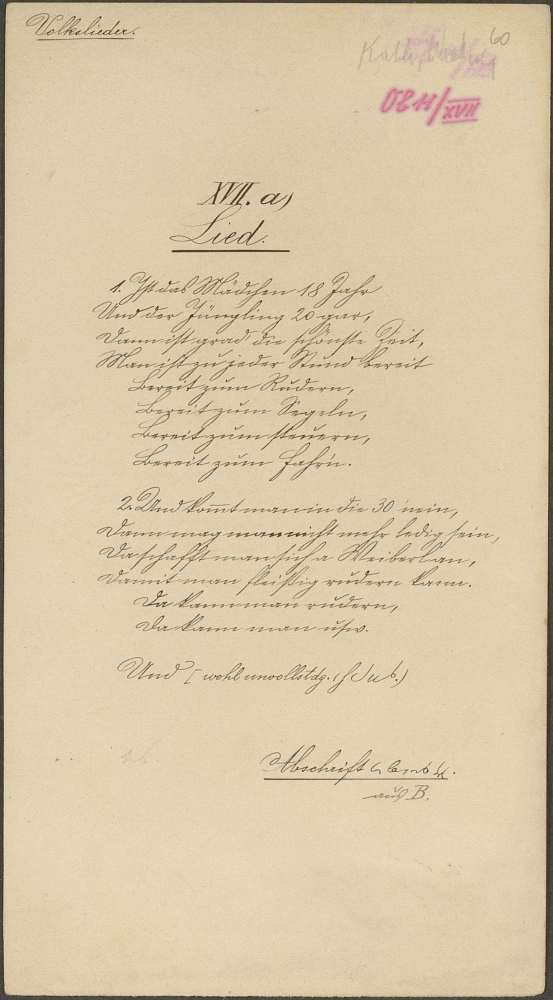 Volkslieder.
60
0211/XVII
XVII. a)
Lied.
1. Ist das Mädchen 18 Jahr
Und der Jüngling 20 gar,
Dann ist grad' die schönste Zeit,
Man ist zu jeder Stund bereit
Bereit zum Rudern,
Bereit zum Segeln,
Bereit zum steuern,
Bereit zum fahr'n.
2. Und kommt man in die 30 'nein,
Dann mag man nicht mehr ledig sein,
Da schafft man sich a Weiberl an,
Damit man fleißig rudern kann.
Da kann man rudern,
Da kann man usw.
Und [wohl unvollstdg.
Abschrift
aus B.